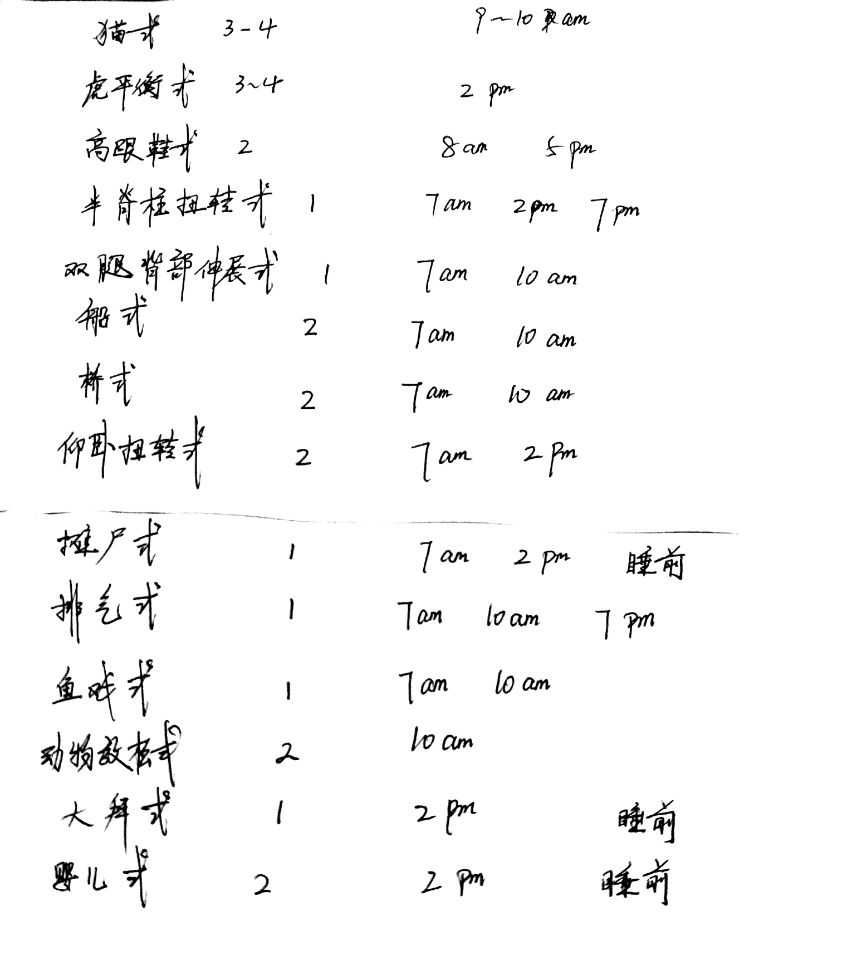 猫式 3-4 9~10 am
虎平衡式 3~4 2 pm
高跟鞋式 2 8 am 5 pm
半脊柱扭转式 1 7 am 2 pm 7 pm
双腿背部伸展式 1 7 am 10 am
船式 2 7 am 10 am
桥式 2 7 am 10 am
仰卧扭转式 2 7 am 2 pm
摊尸式 1 7 am 2 pm 睡前
排气式 1 7 am 10 am 7 pm
鱼戏式 1 7 am 10 am
动物放松式 2 10 am
大拜式 1 2 pm 睡前
婴儿式 2 2 pm 睡前